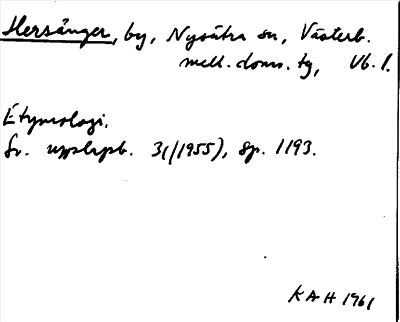 Hersånger, by, Nysätra sn, Västerb.
mell. doms. tg, Vb. l.
Etymologi.
Sv. uppslagsb. 31(1955), sp. 1193.
KAH 1961